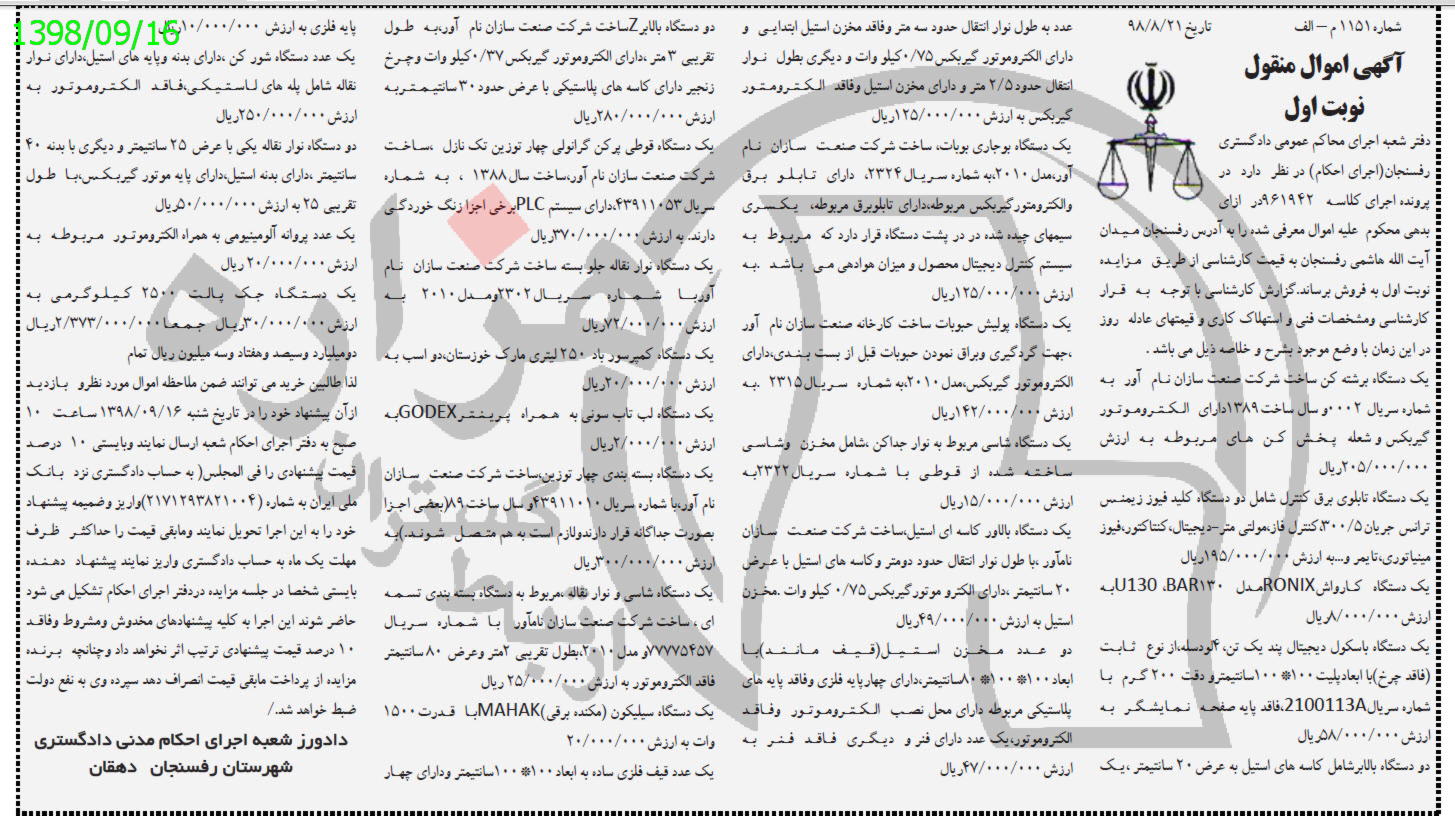 1398/09/16
شماره ۱۱۵۱ م – الف تاریخ ۹۸/۸/۲۱
آگهی اموال منقول
نوبت اول
دفتر شعبه اجرای محاکم عمومی دادگستری
رفسنجان(اجرای احکام) در نظر دارد در
پرونده اجرای کلاسه ۹۶۱۹۴۲در ازای
بدهی محکوم علیه اموال معرفی شده را به آدرس رفسنجان میدان
آیت الله هاشمی رفسنجان به قیمت کارشناسی از طریق مزایده
نوبت اول به فروش برساند.گزارش کارشناسی با توجه به قرار
کارشناسی ومشخصات فنی و استهلاک کاری و قیمتهای عادله روز
در این زمان با وضع موجود بشرح و خلاصه ذیل می باشد .
یک دستگاه برشته کن ساخت شرکت صنعت سازان نام آور به
شماره سریال ۰۰۰۲و سال ساخت ۱۳۸۹دارای الکتروموتور
گیربکس و شعله پخش کن های مربوطه به ارزش
۲۰۵/۰۰۰/۰۰۰ریال
یک دستگاه تابلوی برق کنترل شامل دو دستگاه کلید فیوز زیمنس
ترانس جریان ۳۰۰/۵،کنترل فاز،مولتی متر–دیجیتال،کنتاکتور،فیوز
مینیاتوری،تایمر و...به ارزش ۱۹۵/۰۰۰/۰۰۰ریال
یک دستگاه کارواشRONIXمدل U130 ،BAR۱۳۰به
ارزش۸/۰۰۰/۰۰۰ریال
یک دستگاه باسکول دیجیتال پند یک تن،۴لودسله،از نوع ثابت
(فاقد چرخ)با ابعادپلیت ۱۰۰*۱۰۰سانتیمترو دقت ۲۰۰ گرم با
شماره سریال2100113A،فاقد پایه صفحه نمایشگر به
ارزش ۵۸/۰۰۰/۰۰۰ریال
دو دستگاه بالابرشامل کاسه های استیل به عرض ۲۰ سانتیمتر ،یک
عدد به طول نوار انتقال حدود سه متر وفاقد مخزن استیل ابتدایی و
دارای الکتروموتور گیربکس ۰/۷۵کیلو وات و دیگری بطول نوار
انتقال حدود ۲/۵ متر و دارای مخزن استیل وفاقد الکترومتور
گیربکس به ارزش ۱۲۵/۰۰۰/۰۰۰ریال
یک دستگاه بوجاری بوبات، ساخت شرکت صنعت سازان نام
آور،مدل ۲۰۱۰،به شماره سریال ۲۳۲۴، دارای تابلو برق
والکترومتورگیربکس مربوطه،دارای تابلوبرق مربوطه، یکسری
سیمهای چیده شده در در پشت دستگاه قرار دارد که مربوط به
سیستم کنترل دیجیتال محصول و میزان هوادهی می باشد .به
ارزش ۱۲۵/۰۰۰/۰۰۰ریال
یک دستگاه پولیش حبوبات ساخت کارخانه صنعت سازان نام آور
،جهت گردگیری وبراق نمودن حبوبات قبل از بست بندی،دارای
الکتروموتور گیربکس،مدل ۲۰۱۰،به شماره سریال۲۳۱۵ .به
ارزش ۱۴۲/۰۰۰/۰۰۰ریال
یک دستگاه شاسی مربوط به نوار جداکن ،شامل مخزن وشاسی
ساخته شده از قوطی با شماره سریال۲۳۲۲به
ارزش ۱۵/۰۰۰/۰۰۰ریال
یک دستگاه بالاور کاسه ای استیل،ساخت شرکت صنعت سازان
نامآور ،با طول نوار انتقال حدود دومتر وکاسه های استیل با عرض
۲۰ سانتیمتر ،دارای الکترو موتورگیربکس۰/۷۵ کیلو وات .مخزن
استیل به ارزش ۴۹/۰۰۰/۰۰۰ریال
دو عدد مخزن استیل(قیف مانند)با
ابعاد۱۰۰*۱۰۰*۸۰سانتیمتر،دارای چهارپایه فلزی وفاقد پایه های
پلاستیکی مربوطه دارای محل نصب الکتروموتور وفاقد
الکتروموتور،یک عدد دارای فنر و دیگری فاقد فنر به
ارزش ۴۷/۰۰۰/۰۰۰ریال
دو دستگاه بالابرZساخت شرکت صنعت سازان نام آور،به طول
تقریبی ۳ متر ،دارای الکتروموتور گیربکس ۰/۳۷کیلو وات وچرخ
زنجیر دارای کاسه های پلاستیکی با عرض حدود۳۰ سانتیمتربه
ارزش۲۸۰/۰۰۰/۰۰۰ریال
یک دستگاه قوطی پرکن گرانولی چهار توزین تک نازل ،ساخت
شرکت صنعت سازان نام آور،ساخت سال۱۳۸۸ ، به شماره
سریال۴۳۹۱۱۰۵۳،دارای سیستم PLCبرخی اجزا زنگ خوردگی
دارند. به ارزش ۳۷۰/۰۰۰/۰۰۰ریال
یک دستگاه نوار نقاله جلو بسته ساخت شرکت صنعت سازان نام
آوربا شماره سریال۲۳۰۲ومدل۲۰۱۰ به
ارزش۷۲/۰۰۰/۰۰۰ریال
یک دستگاه کمپرسور باد ۲۵۰ لیتری مارک خوزستان،دو اسب به
ارزش ۲۰/۰۰۰/۰۰۰ریال
یک دستگاه لب تاب سونی به همراه پرینترGODEXبه
ارزش ۲/۰۰۰/۰۰۰ریال
یک دستگاه بسته بندی چهار توزین،ساخت شرکت صنعت سازان
نام آور،با شماره سریال ۴۳۹۱۱۰۱۰و سال ساخت۸۹(بعضی اجزا
بصورت جداگانه قرار دارندولازم است به هم متصل شوند.)به
ارزش ۳۰۰/۰۰۰/۰۰۰ریال
یک دستگاه شاسی و نوار نقاله ،مربوط به دستگاه بسته بندی تسمه
ای ، ساخت شرکت صنعت سازان نامآور، با شماره سریال
۷۷۷۷۵۴۵۷و مدل ۲۰۱۰،بطول تقریبی ۲متر وعرض ۸۰ سانتیمتر
فاقد الکتروموتور به ارزش ۲۵/۰۰۰/۰۰۰ ریال
یک دستگاه سیلیکون (مکنده برقی)MAHAKبا قدرت ۱۵۰۰
وات به ارزش ۲۰/۰۰۰/۰۰۰
یک عدد قیف فلزی ساده به ابعاد ۱۰۰*۱۰۰سانتیمتر ودارای چهار
پایه فلزی به ارزش ۱۰/۰۰۰/۰۰۰ریال
یک عدد دستگاه شور کن ،دارای بدنه وپایه های استیل،دارای نوار
نقاله شامل پله های لاستیکی،فاقد الکتروموتور به
ارزش۲۵۰/۰۰۰/۰۰۰ریال
دو دستگاه نوار نقاله یکی با عرض ۲۵ سانتیمتر و دیگری با بدنه ۴۰
سانتیمتر ،دارای بدنه استیل،دارای پایه موتور گیربکس،با طول
تقریبی ۲۵ به ارزش ۵۰/۰۰۰/۰۰۰ریال
یک عدد پروانه آلومینیومی به همراه الکتروموتور مربوطه به
ارزش۲۰/۰۰۰/۰۰۰ ریال
یک دستگاه جک پالت ۲۵۰۰ کیلوگرمی به
ارزش۳۰/۰۰۰/۰۰۰ریال جمعا۲/۳۷۳/۰۰۰/۰۰۰ریال
دومیلیارد وسیصد وهفتاد وسه میلیون ریال تمام
لذا طالبین خرید می توانند ضمن ملاحظه اموال مورد نظرو بازدید
ازآن پیشنهاد خود را در تاریخ شنبه ۱۳۹۸/۰۹/۱۶ ساعت ۱۰
صبح به دفتر اجرای احکام شعبه ارسال نمایند وبایستی ۱۰ درصد
قیمت پیشنهادی را فی المجلس( به حساب دادگستری نزد بانک
ملی ایران به شماره (۲۱۷۱۲۹۳۸۲۱۰۰۴)واریز وضمیمه پیشنهاد
خود را به این اجرا تحویل نمایند ومابقی قیمت را حداکثر ظرف
مهلت یک ماه به حساب دادگستری واریز نمایند پیشنهاد دهنده
بایستی شخصا در جلسه مزایده دردفتر اجرای احکام تشکیل می شود
حاضر شوند این اجرا به کلیه پیشنهادهای مخدوش ومشروط وفاقد
۱۰ درصد قیمت پیشنهادی ترتیب اثر نخواهد داد وچنانچه برنده
مزایده از پرداخت مابقی قیمت انصراف دهد سپرده وی به نفع دولت
ضبط خواهد شد./
دادورز شعبه اجرای احکام مدنی دادگستری
شهرستان رفسنجان دهقان